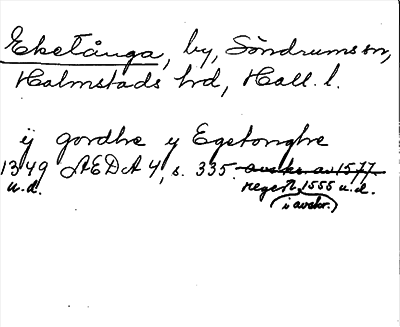 Eketånga, by, Söndrums sn,
Halmstads hrd, Hall. l.
ij gordhe y Egetonghe
1349 ÆDA 4, s. 335. avskr. av 1577
u.d. regest 1555 u.d.
(i avskr.)